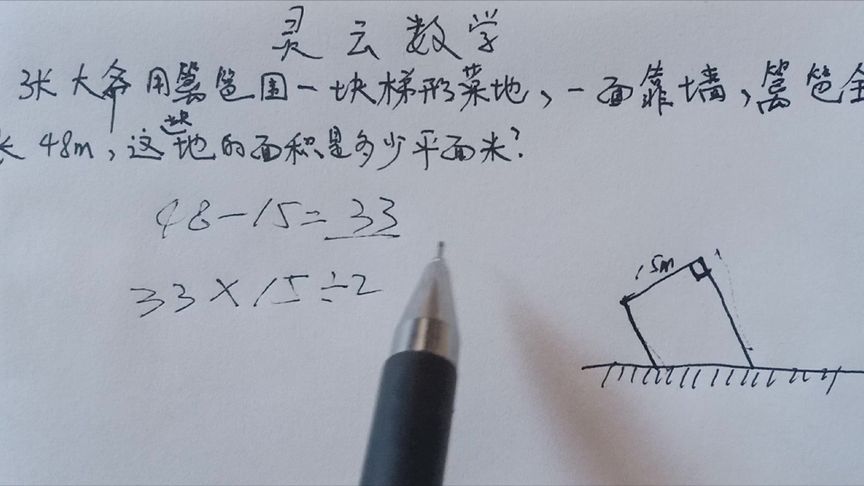 灵云数学
张大爷用篱笆围一块梯形菜地，一面靠墙，篱笆全
长48m，这块地的面积是多少平面米？
48-15=33
33×15÷2
15m